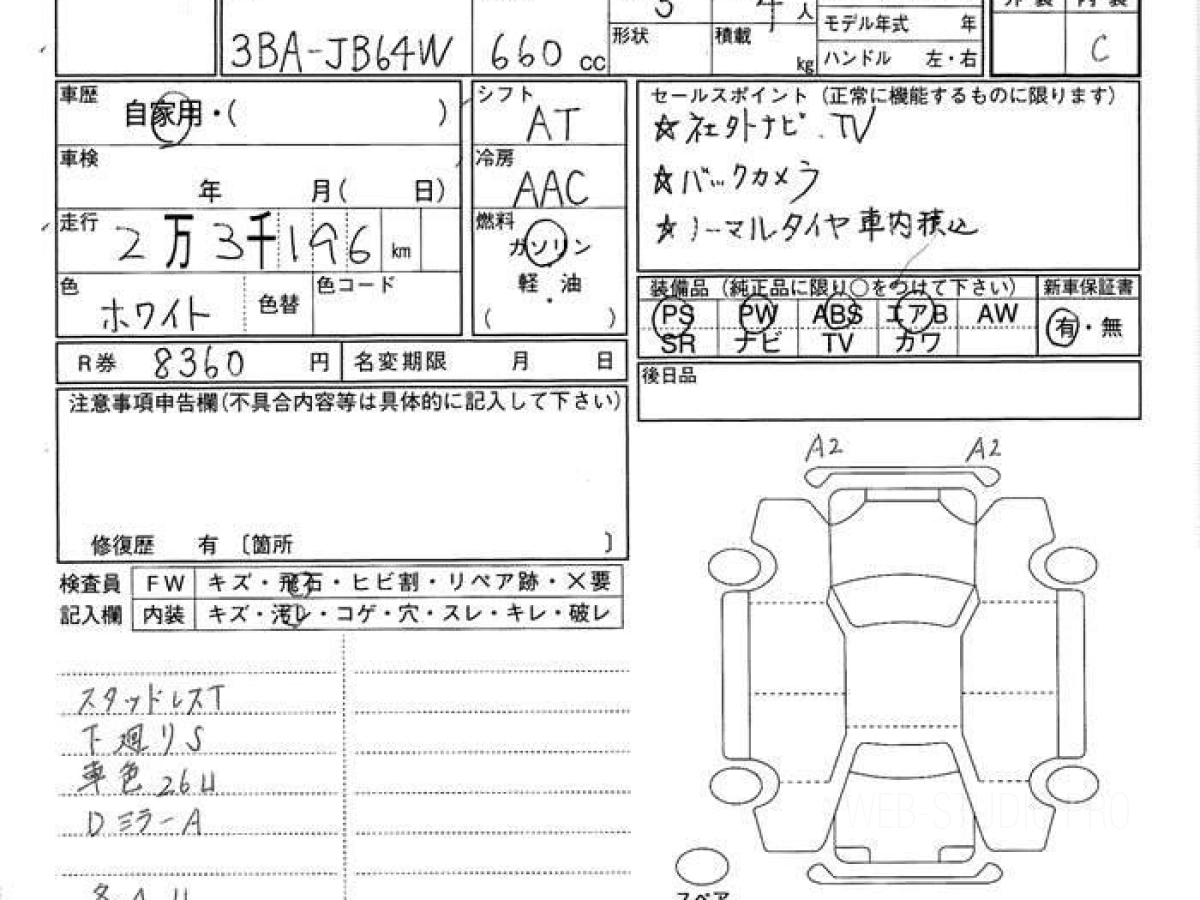 3BA-JB64W 660 cc
形状 積載 kg
人
モデル年式 年
ハンドル 左・右
C
車歴 自家用・( )
車検 年 月( 日)
走行 2万3千196 km
色 ホワイト 色替 色コード
シフト AT
冷房 AAC
燃料 ガソリン
軽・油
( )
セールスポイント (正常に機能するものに限ります)
☆社外ナビ.TV
☆バックカメラ
☆ノーマルタイヤ車内積込
装備品 (純正品に限り○をつけて下さい) 新車保証書
PS PW ABS エアB AW 有・無
SR ナビ TV カワ
R券 8360 円 名変期限 月 日
後日品
注意事項申告欄(不具合内容等は具体的に記入して下さい)
修復歴 有 〔箇所 〕
検査員 FW キズ・飛石・ヒビ割・リペア跡・×要
記入欄 内装 キズ・汚レ・コゲ・穴・スレ・キレ・破レ
スタッドレスT
下廻りS
車色26U
Dミラー A
A2 A2
スペア
WEB-STUDIO PRO